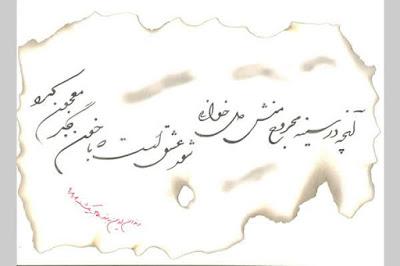 آنچه در سینه مجروح منش دل
شور عشق است که با خون جگر معجون کرد